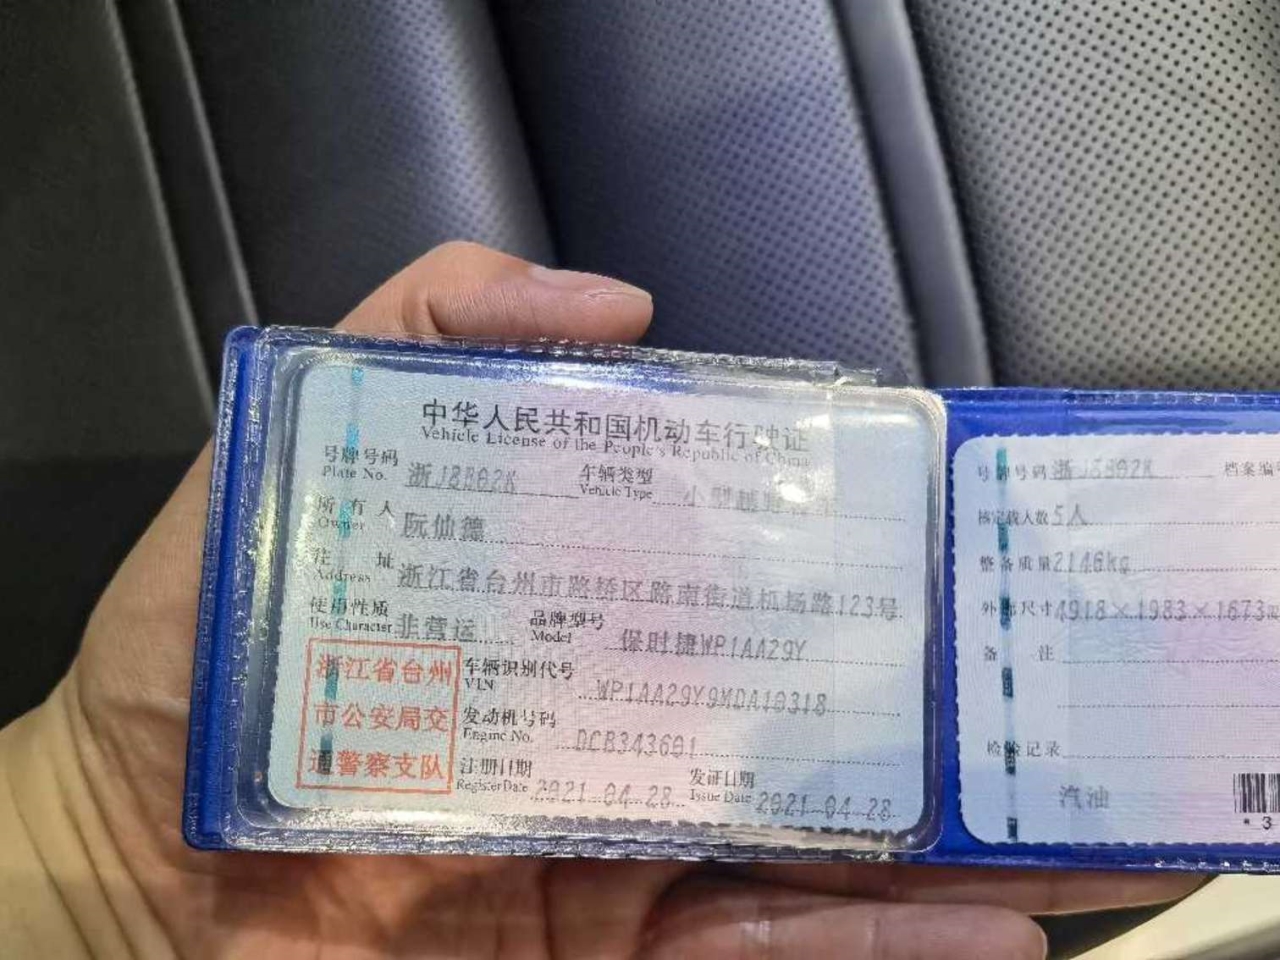 中华人民共和国机动车行驶证
Vehicle License of the People's Republic of China
号牌号码 浙J8B82K 车辆类型
Plate No. Vehicle Type
所有人 阮仙德
Owner
住址 浙江省台州市路桥区路南街道机场路123号
Address
使用性质 非营运 品牌型号 保时捷WP1AA29Y
Use Character Model
浙江省台州
市公安局交
通警察支队
车辆识别代号
VIN WP1AA29Y9MDA10318
发动机号码
Engine No. DCB343601
注册日期 2021-04-28 发证日期 2021-04-28
Register Date Issue Date
号牌号码 浙J8B82K 档案编
核定载人数 5人
整备质量 2146kg
外廓尺寸 4918×1983×1673
备注
检验记录
汽油
*3